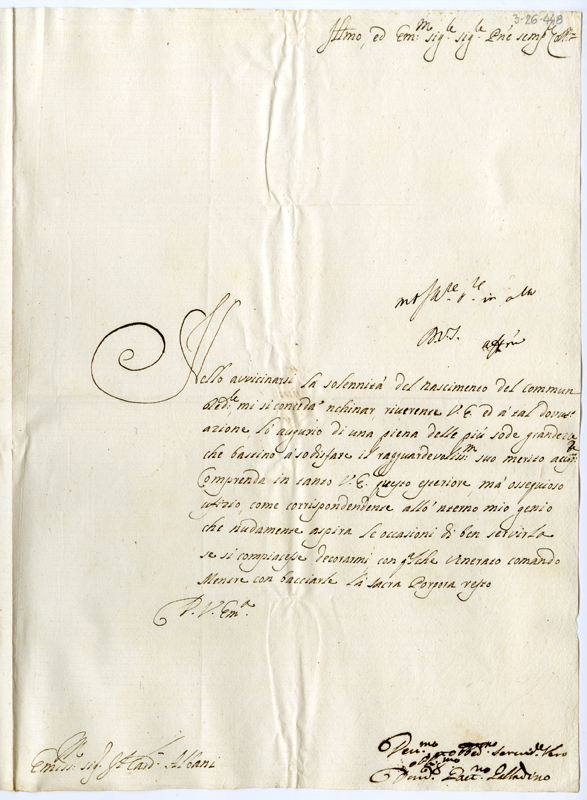 3-26-448
Illmo, ed Em:mo sig:re sig:re Pne
Nello avvicinarsi la solennità del nascimento del commun
Red:re mi si conceda nchinar riverente V.E. ed à tal
azione lo augurio di una piena delle più sode grandezze
che bastino à sodisfare il ragguardevoliss:mo suo merito
Comprenda in tanto V.E. questo esteriore, mà ossequioso
ufizio, come corrispondente allo nterno mio genio
che nudamente aspira le occasioni di ben servirla
se si compiacesse decorarmi con qlche venerato comando
Mentre con bacciarle la sacra Porpora resto
D. V. Em:a
Dev:mo
Emo sig:r Card: Albani